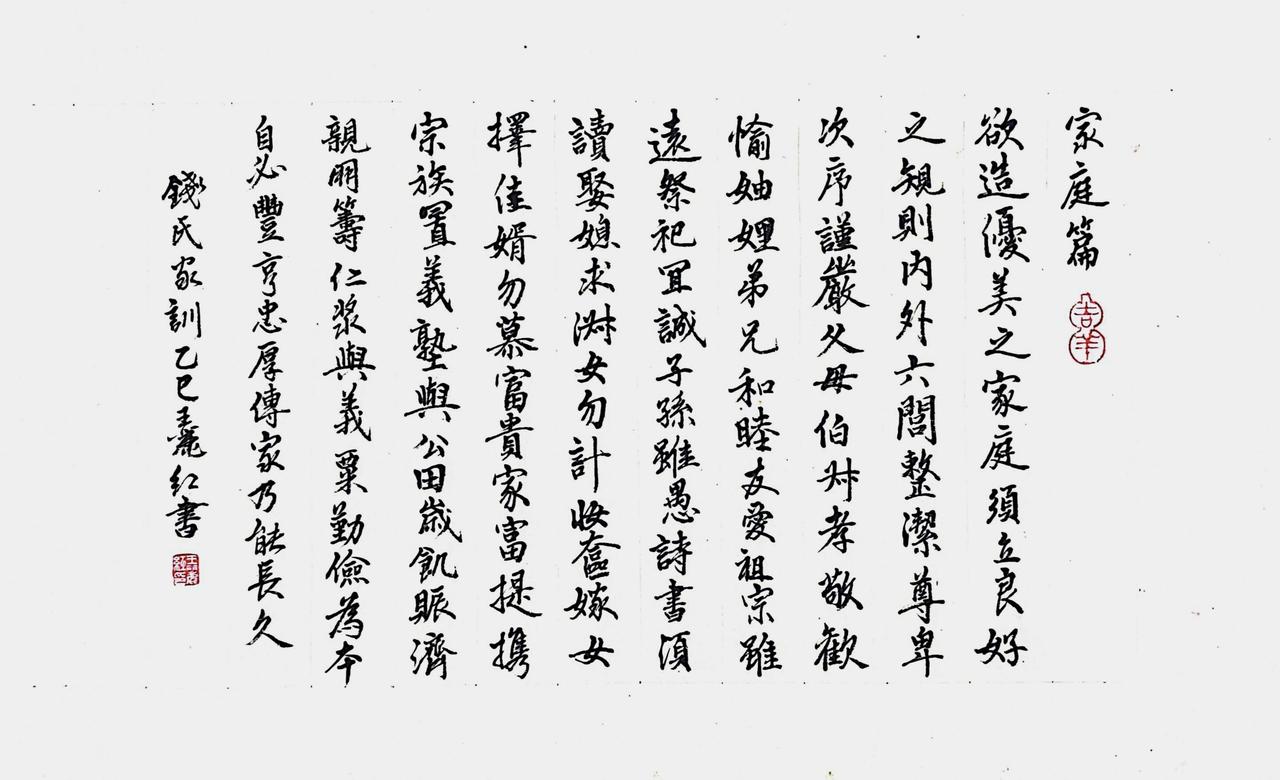 家庭篇
吉羊
欲造優美之家庭須立良好
之規則内外六閭整潔尊卑
次序謹嚴父母伯叔孝敬歡
愉妯娌弟兄和睦友愛祖宗雖
遠祭祀宜誠子孫雖愚詩書須
讀娶媳求淑女勿計妝奩嫁女
擇佳婿勿慕富貴家富提携
宗族置義塾與公田歲飢賑濟
親朋籌仁漿與義粟勤儉為本
自必豐亨忠厚傳家乃能長久
錢氏家訓乙巳王麗紅書